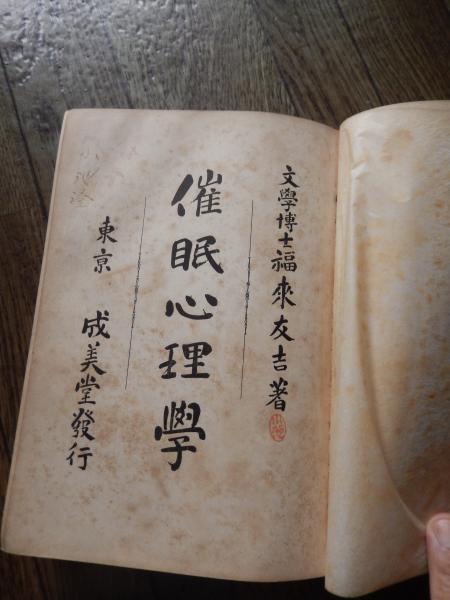 文學博士福來友吉著
催眠心理學
東京 成美堂發行